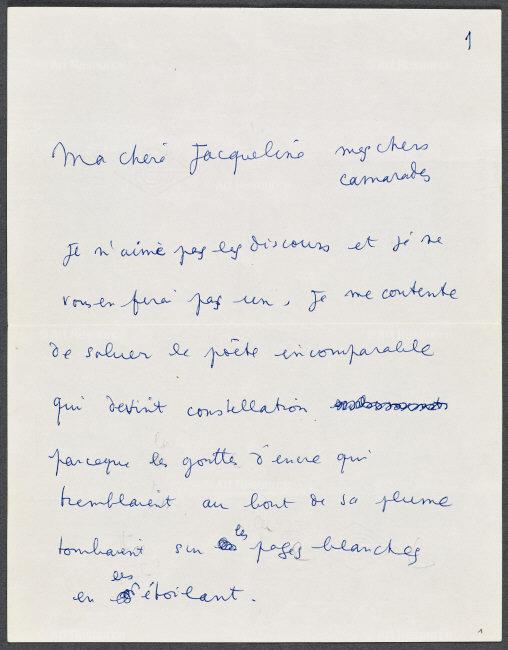 1
Ma chère Jacqueline mes chers
camarades
Je n'aime pas les discours et je ne
vous en ferai pas un. Je me contente
de saluer le poète incomparable
qui devint constellation
parceque les gouttes d'encre qui
tremblaient au bout de sa plume
tombaient sur les pages blanches
en les étoilant.
1